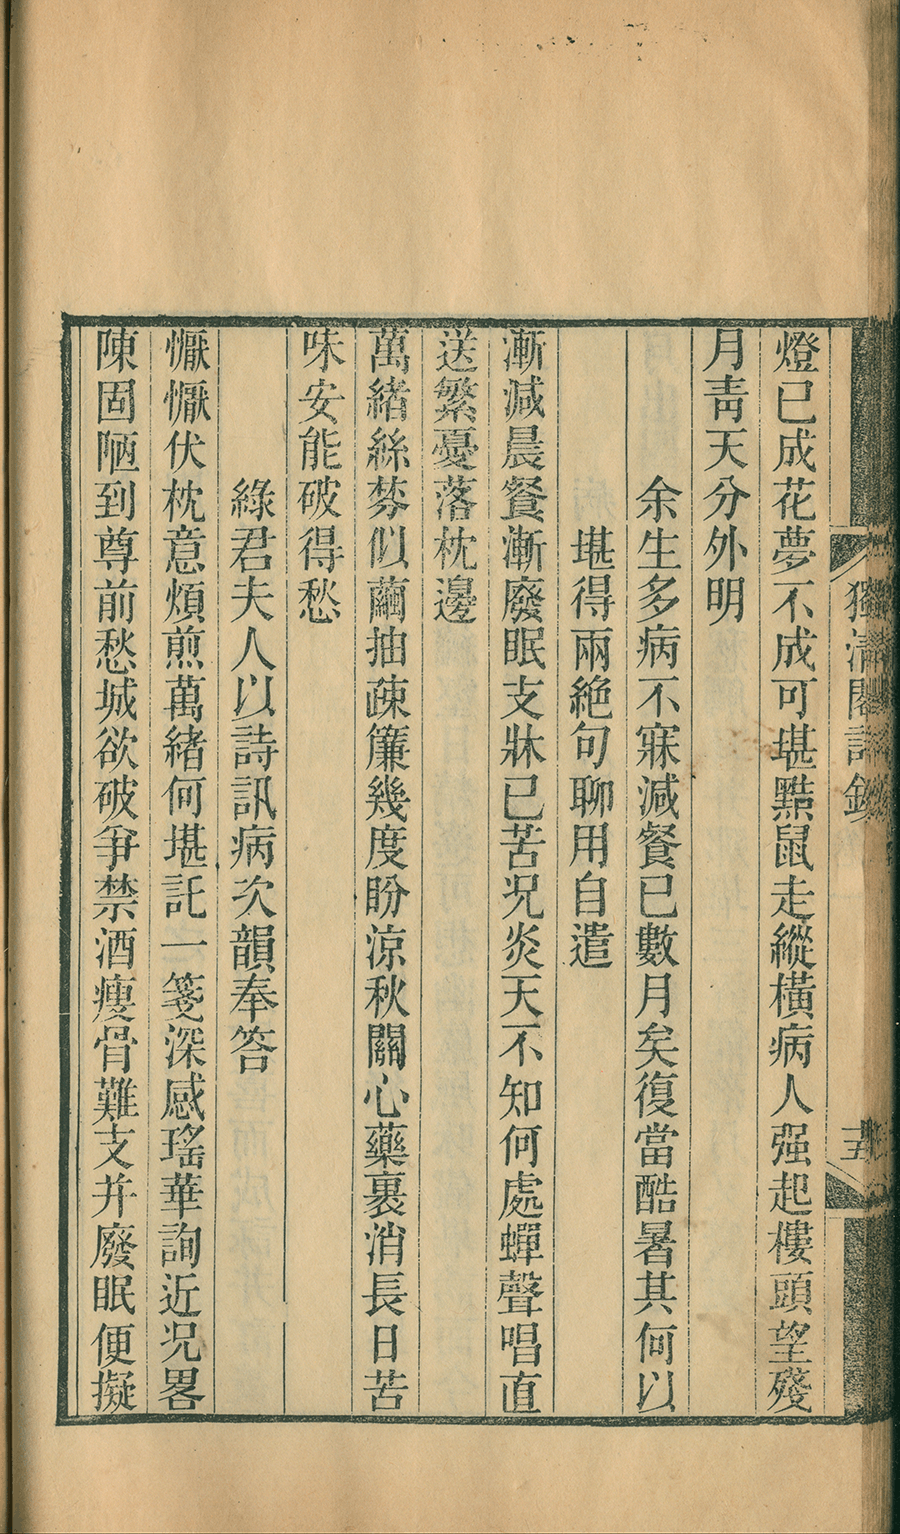 獨清閣詩鈔
十五
燈已成花夢不成可堪黠鼠走縱橫病人强起樓頭望殘
月靑天分外明
余生多病不寐減餐已數月矣復當酷暑其何以
堪得兩絶句聊用自遣
漸減晨餐漸廢眠支牀已苦况炎天不知何處蟬聲唱直
送繁憂落枕邊
萬緒絲棼似繭抽疎簾幾度盼涼秋關心藥裹消長日苦
味安能破得愁
綠君夫人以詩訊病次韻奉答
懨懨伏枕意煩煎萬緒何堪託一箋深感瑤華詢近况畧
陳固陋到尊前愁城欲破爭禁酒瘦骨難支幷廢眠便擬